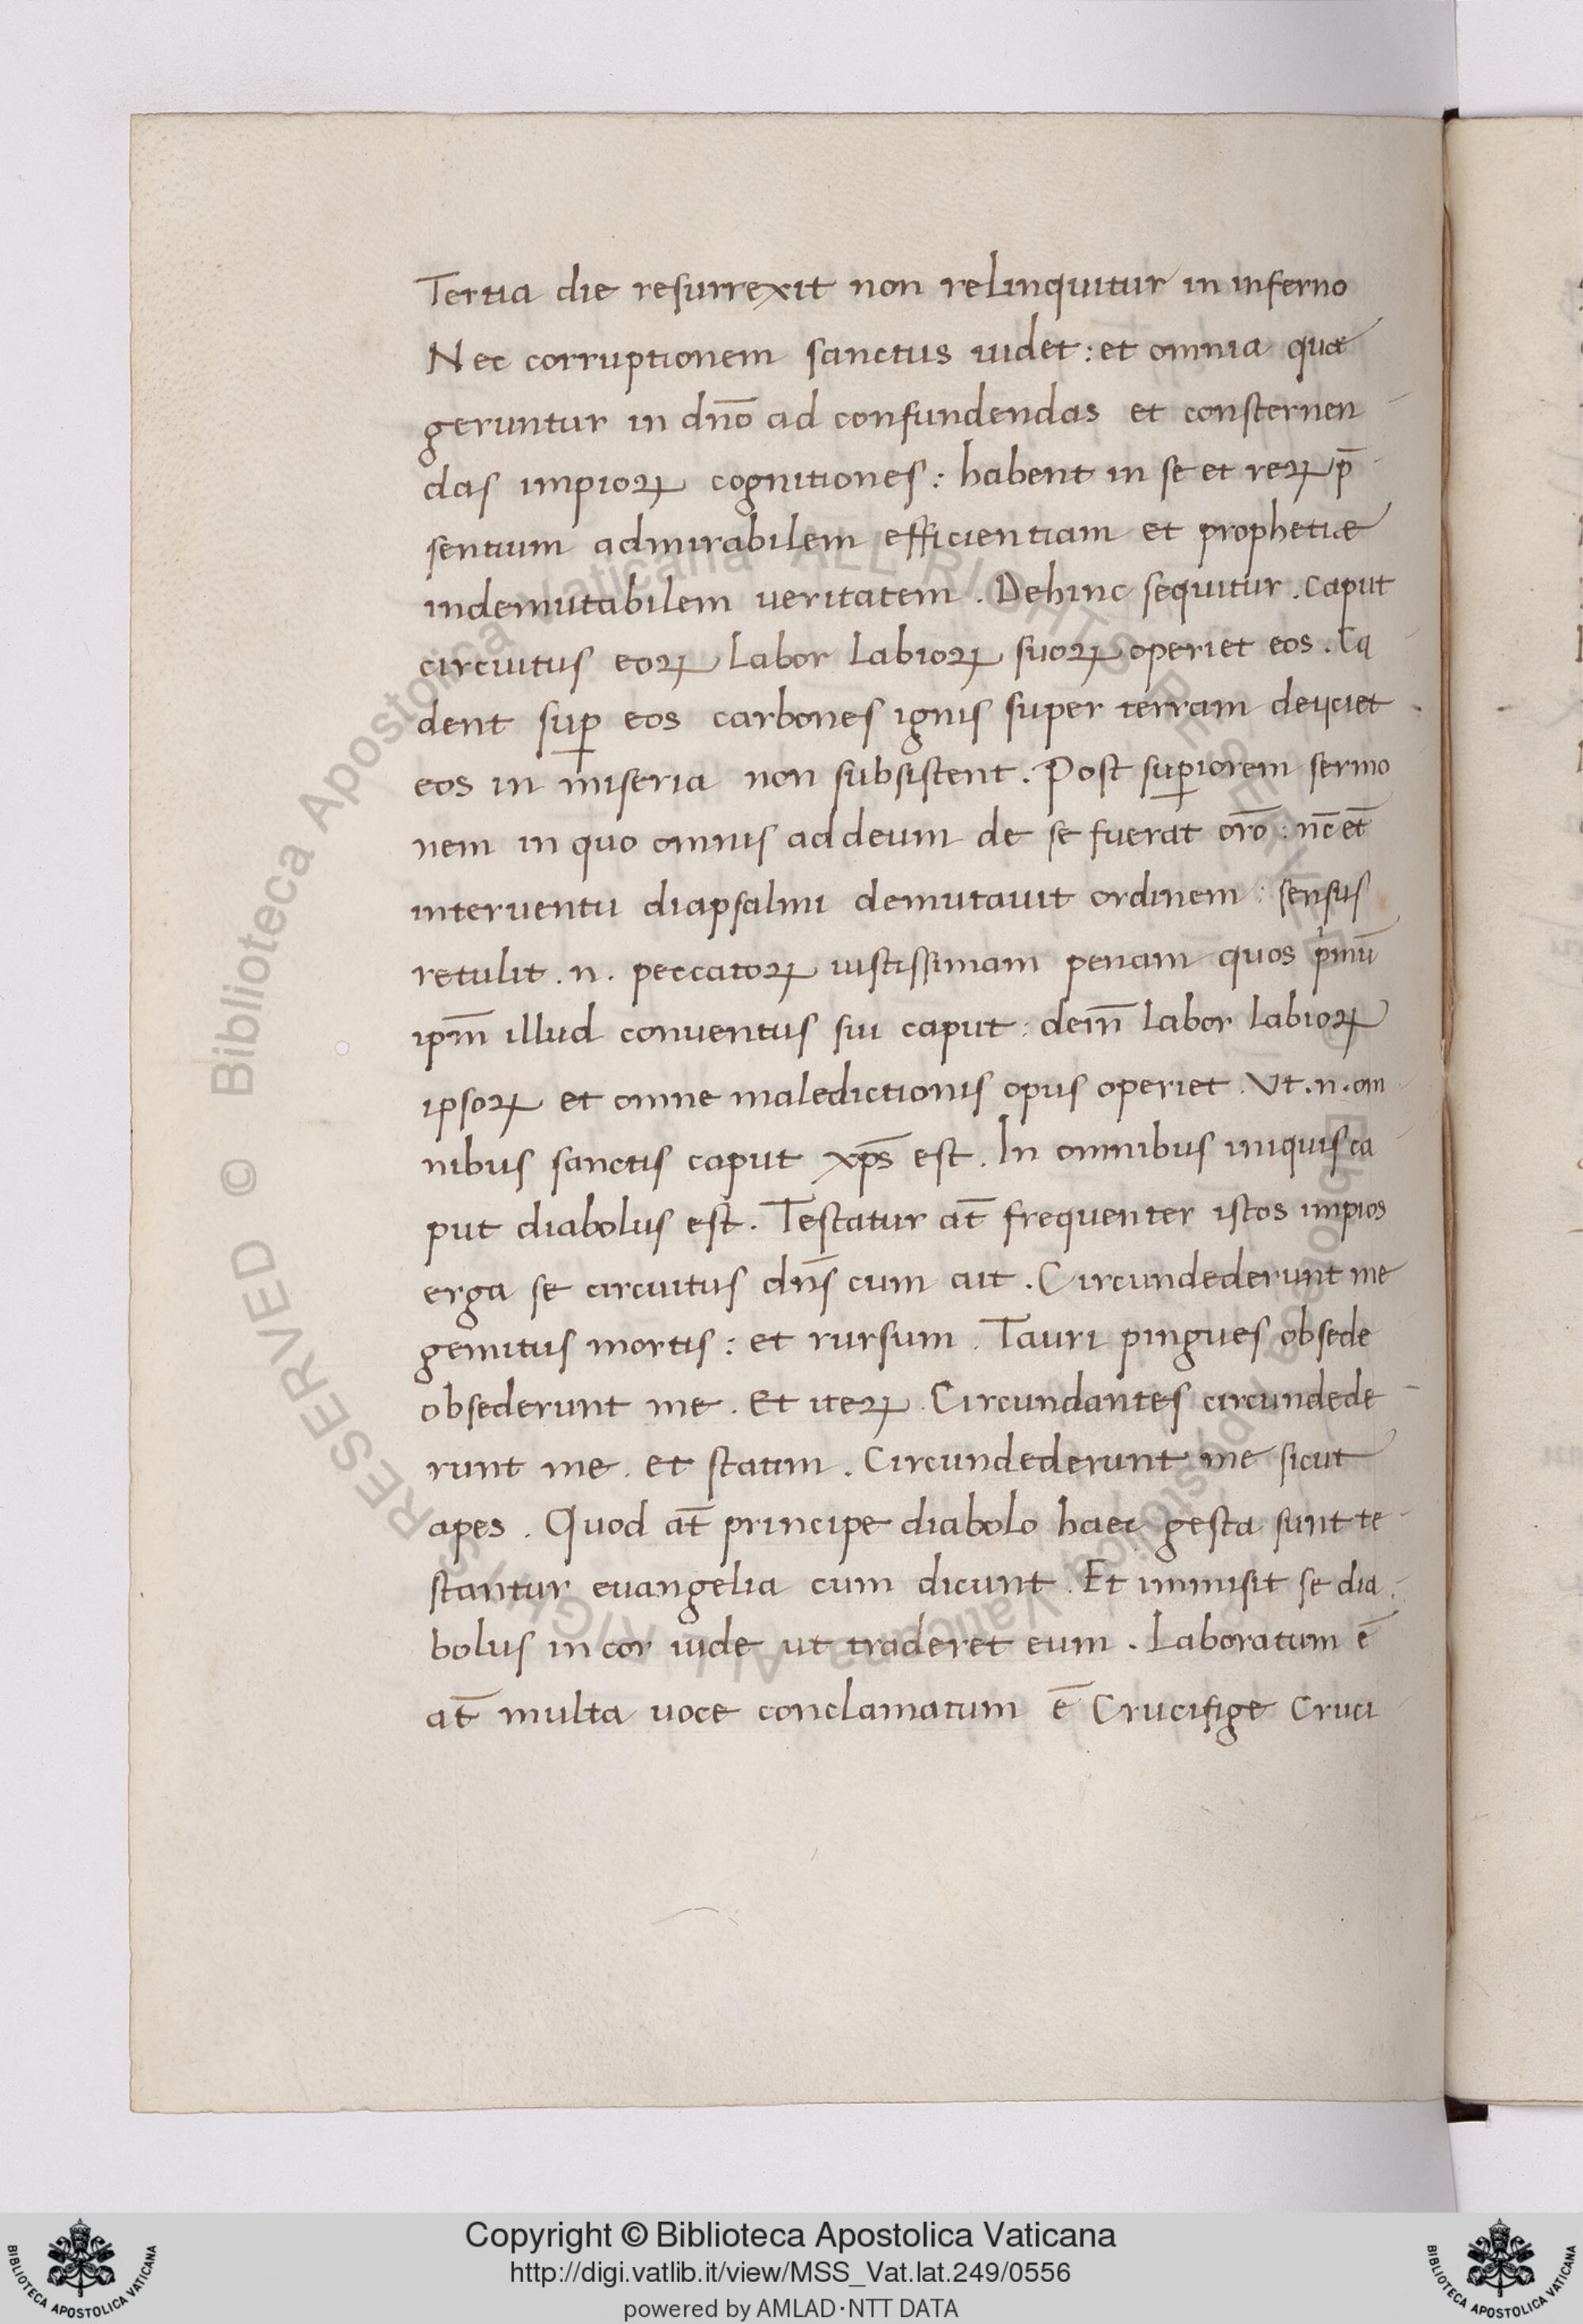 Tertia die resurrexit non relinquitur in inferno
Nec corruptionem sanctus uidet: et omnia quæ
geruntur in dn̄o ad confundendas et consternen
das impioꝝ cognitiones: habent in se et reꝝ p̄
sentium admirabilem efficientiam et prophetiæ
indemutabilem veritatem. Dehinc sequitur. caput
circuitus eoꝝ labor labioꝝ suoꝝ operiet eos. Ca
dent suꝑ eos carbones ignis super terram deijciet
eos in miseria non subsistent. Post suꝑiorem sermo
nem in quo omnis ad deum de se fuerat or̄o: nc̄ et̄
interuentu diapsalmi demutauit ordinem: sensus
retulit. n. peccatoꝝ iustissimam penam quos pͥmū
ip̄m illud conuentus sui caput: dein̄ labor labioꝝ
ipsoꝝ et omne maledictionis opus operiet. Vt. n. om
nibus sanctis caput xp̄s est. In omnibus iniquis ca
put diabolus est. Testatur at̄ frequenter istos impios
erga se circuitus dn̄s cum ait. Circundederunt me
gemitus mortis: et rursum. Tauri pingues obsede
obsederunt me. Et iteꝝ. Circundantes circundede
runt me. et statim. Circundederunt me sicut
apes. Quod at̄ principe diabolo haec gesta sunt te
stantur euangelia cum dicunt. Et immisit se dia
bolus in cor iude ut traderet eum. Laboratum ē
at̄ multa uoce conclamatum ē Crucifige Cruci
Copyright © Biblioteca Apostolica Vaticana
http://digi.vatlib.it/view/MSS_Vat.lat.249/0556
powered by AMLAD·NTT DATA